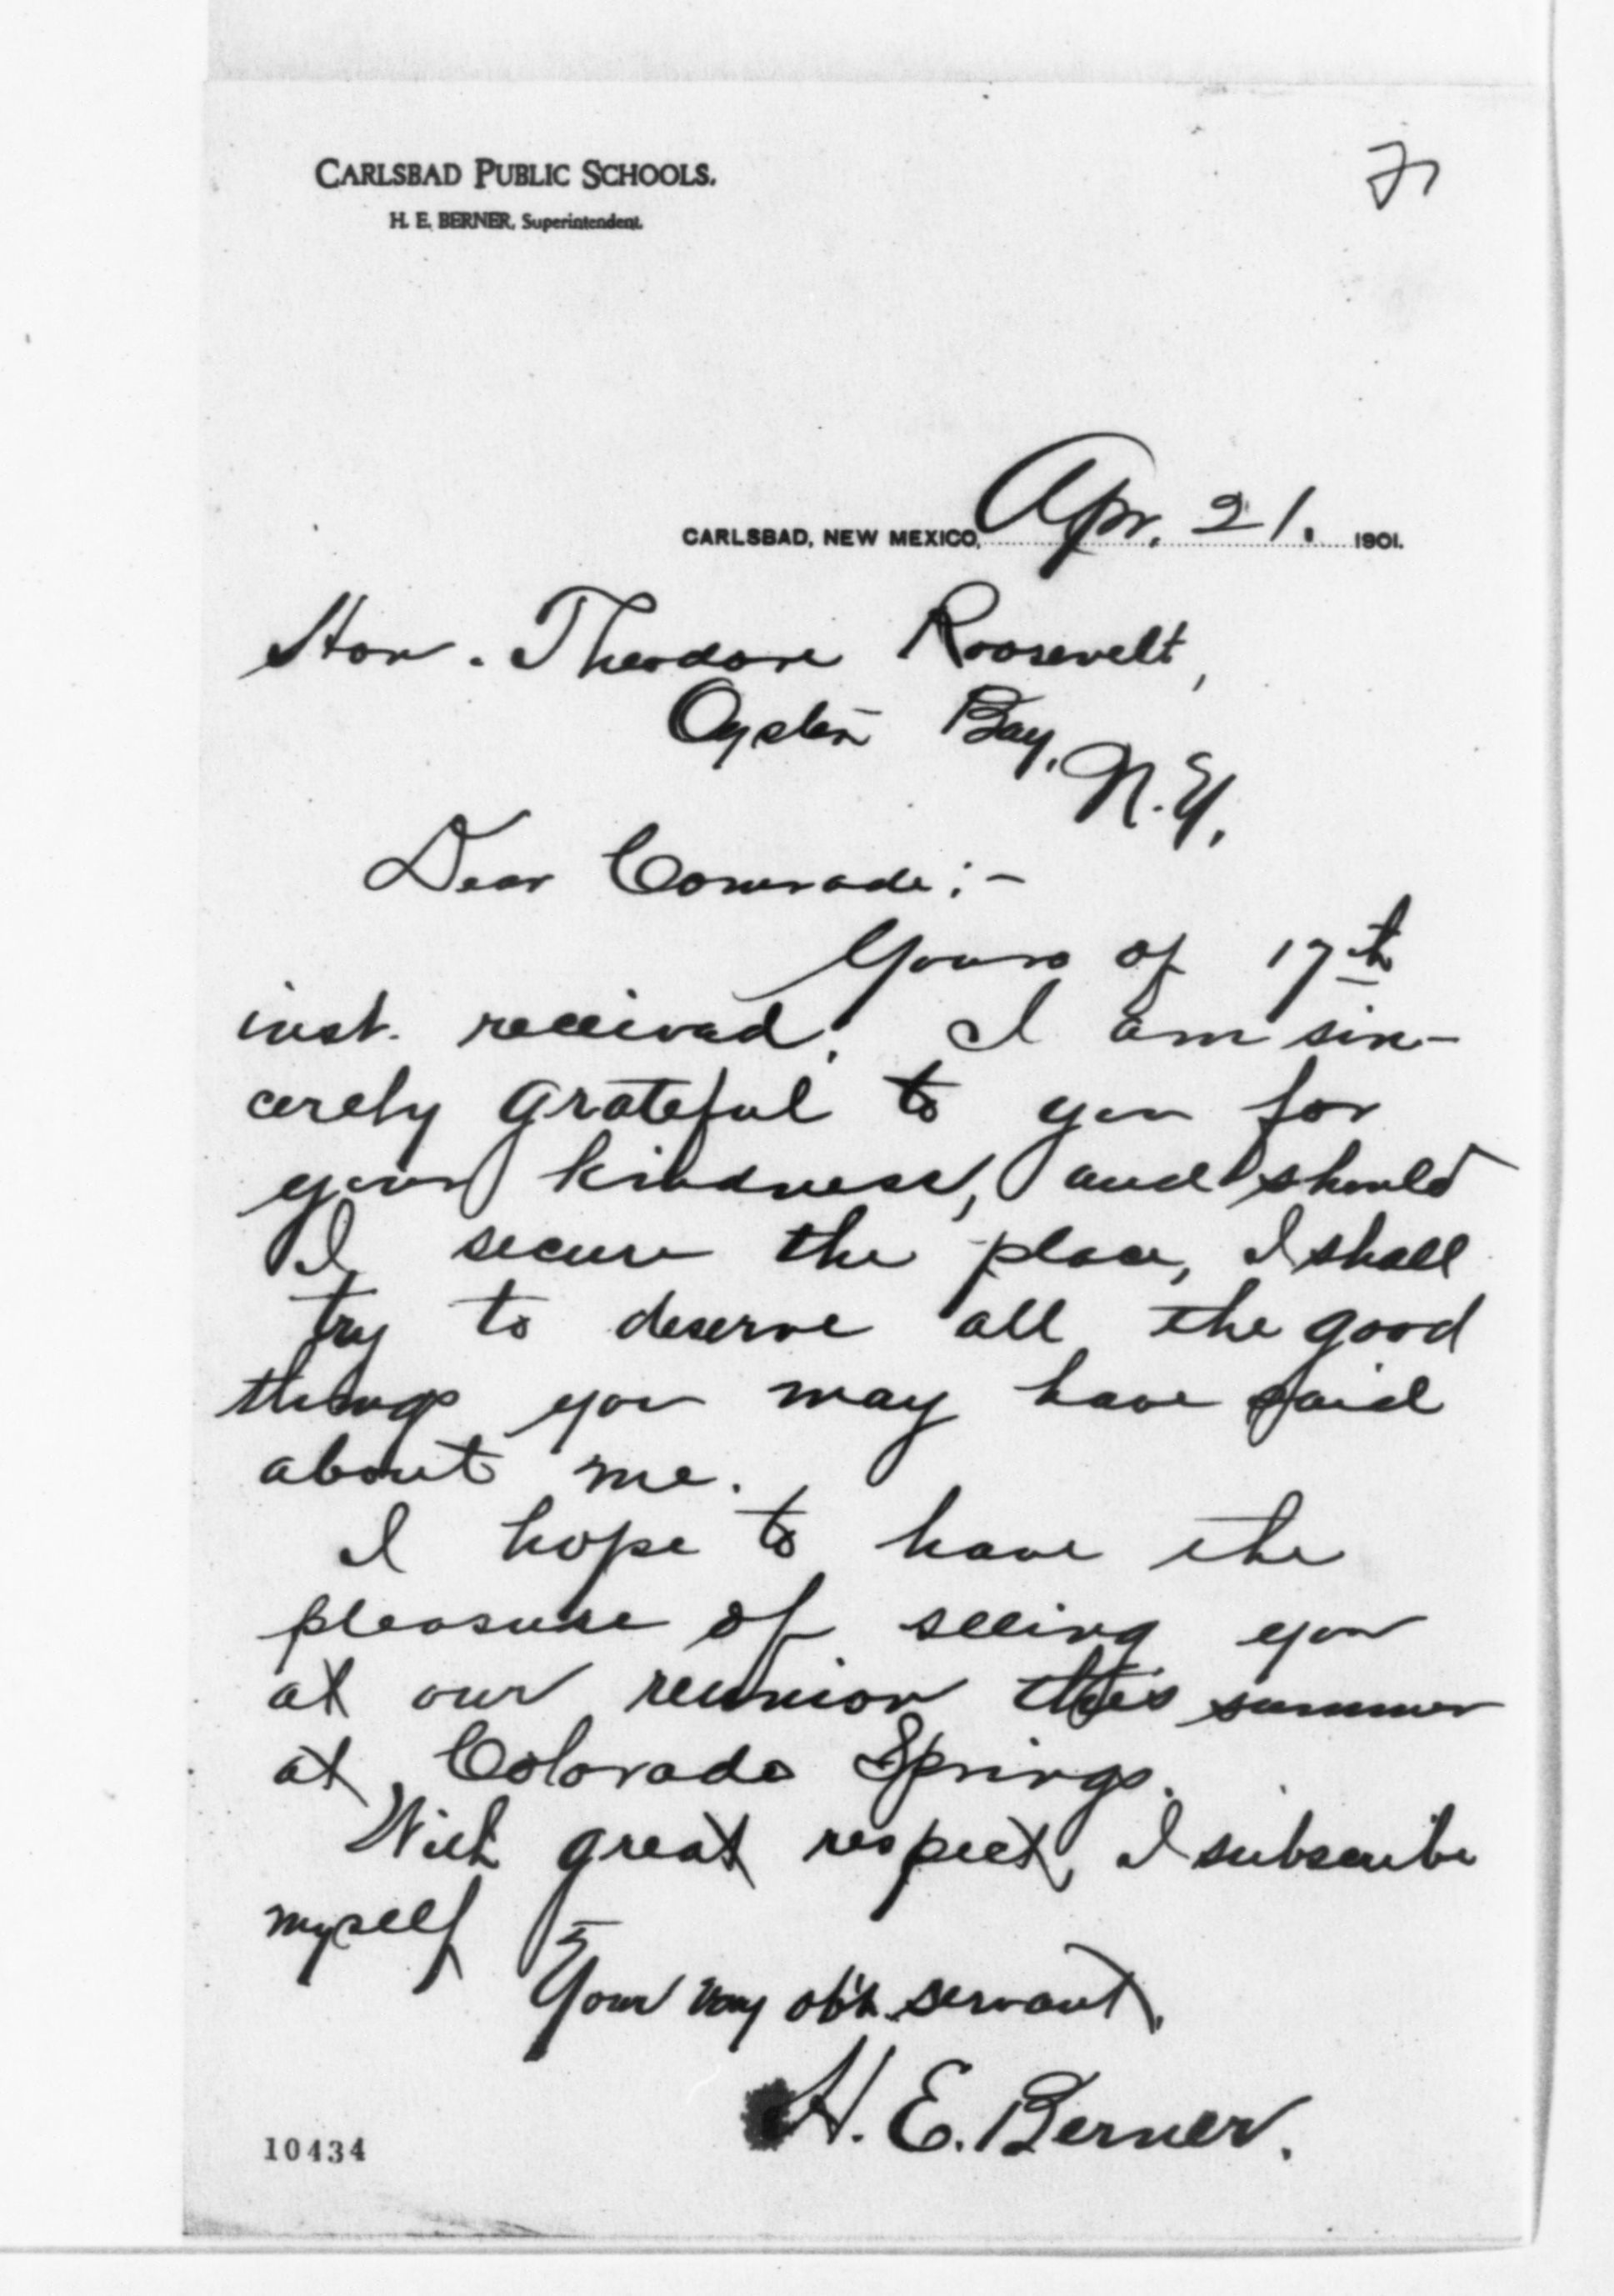 CARLSBAD PUBLIC SCHOOLS.
H. E. BERNER, Superintendent.
CARLSBAD, NEW MEXICO, Apr. 21. 1901.
Hon. Theodore Roosevelt,
Oyster Bay,
N.Y.
Dear Comrade:-
Yours of 17th
inst. received. I am sin-
cerely grateful to you for
your kindness, and should
I secure the place, I shall
try to deserve all the good
things you may have said
about me.
I hope to have the
pleasure of seeing you
at our reunion this summer
at Colorado Springs.
With great respect, I subscribe
myself
Your very ob't. servant,
H. E. Berner.
10434